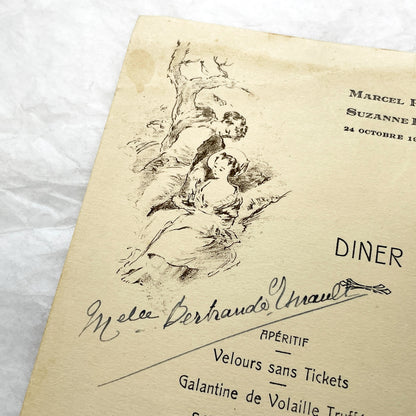 MARCEL
SUZANNE
24 OCTOBRE
DINER
Melle Bertrande
APÉRITIF
Velours sans Tickets
Galantine de Volaille